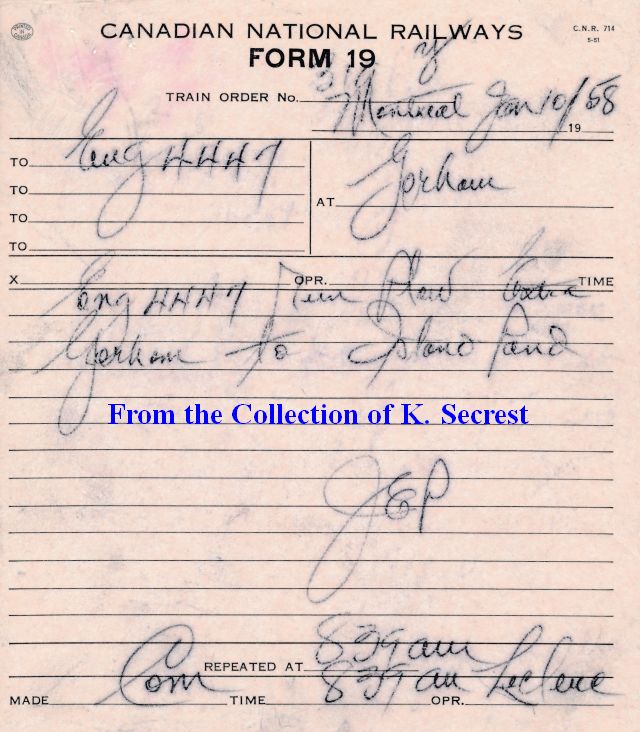 PRINTED IN CANADA
CANADIAN NATIONAL RAILWAYS
C.N.R. 714
5-51
FORM 19
TRAIN ORDER No.
Montreal Jan 10/58
19
TO Eng 4447
TO
AT Gorham
TO
TO
X OPR. TIME
Eng 4447 Run Plow Extra
Gorham to Island Pond
From the Collection of K. Secrest
JEP
REPEATED AT 839 am
MADE Com TIME 839 am OPR. Leclerc